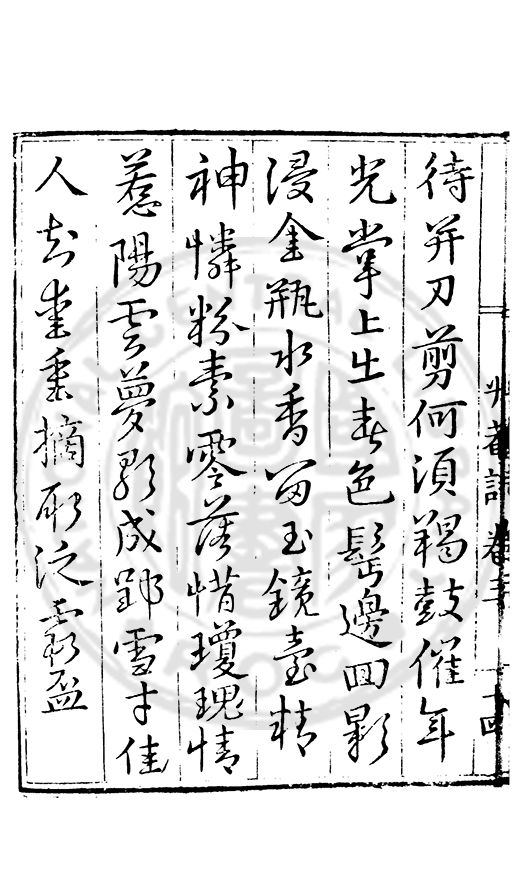 待并刀剪何須羯鼓催年
光掌上生春色髩邊回影
浸金瓶水香留玉鏡臺精
神憐粉素零落惜瓊瑰情
惹陽雲夢影成郢雪才佳
人知愛重摘取泛霞盃
卷三
十四